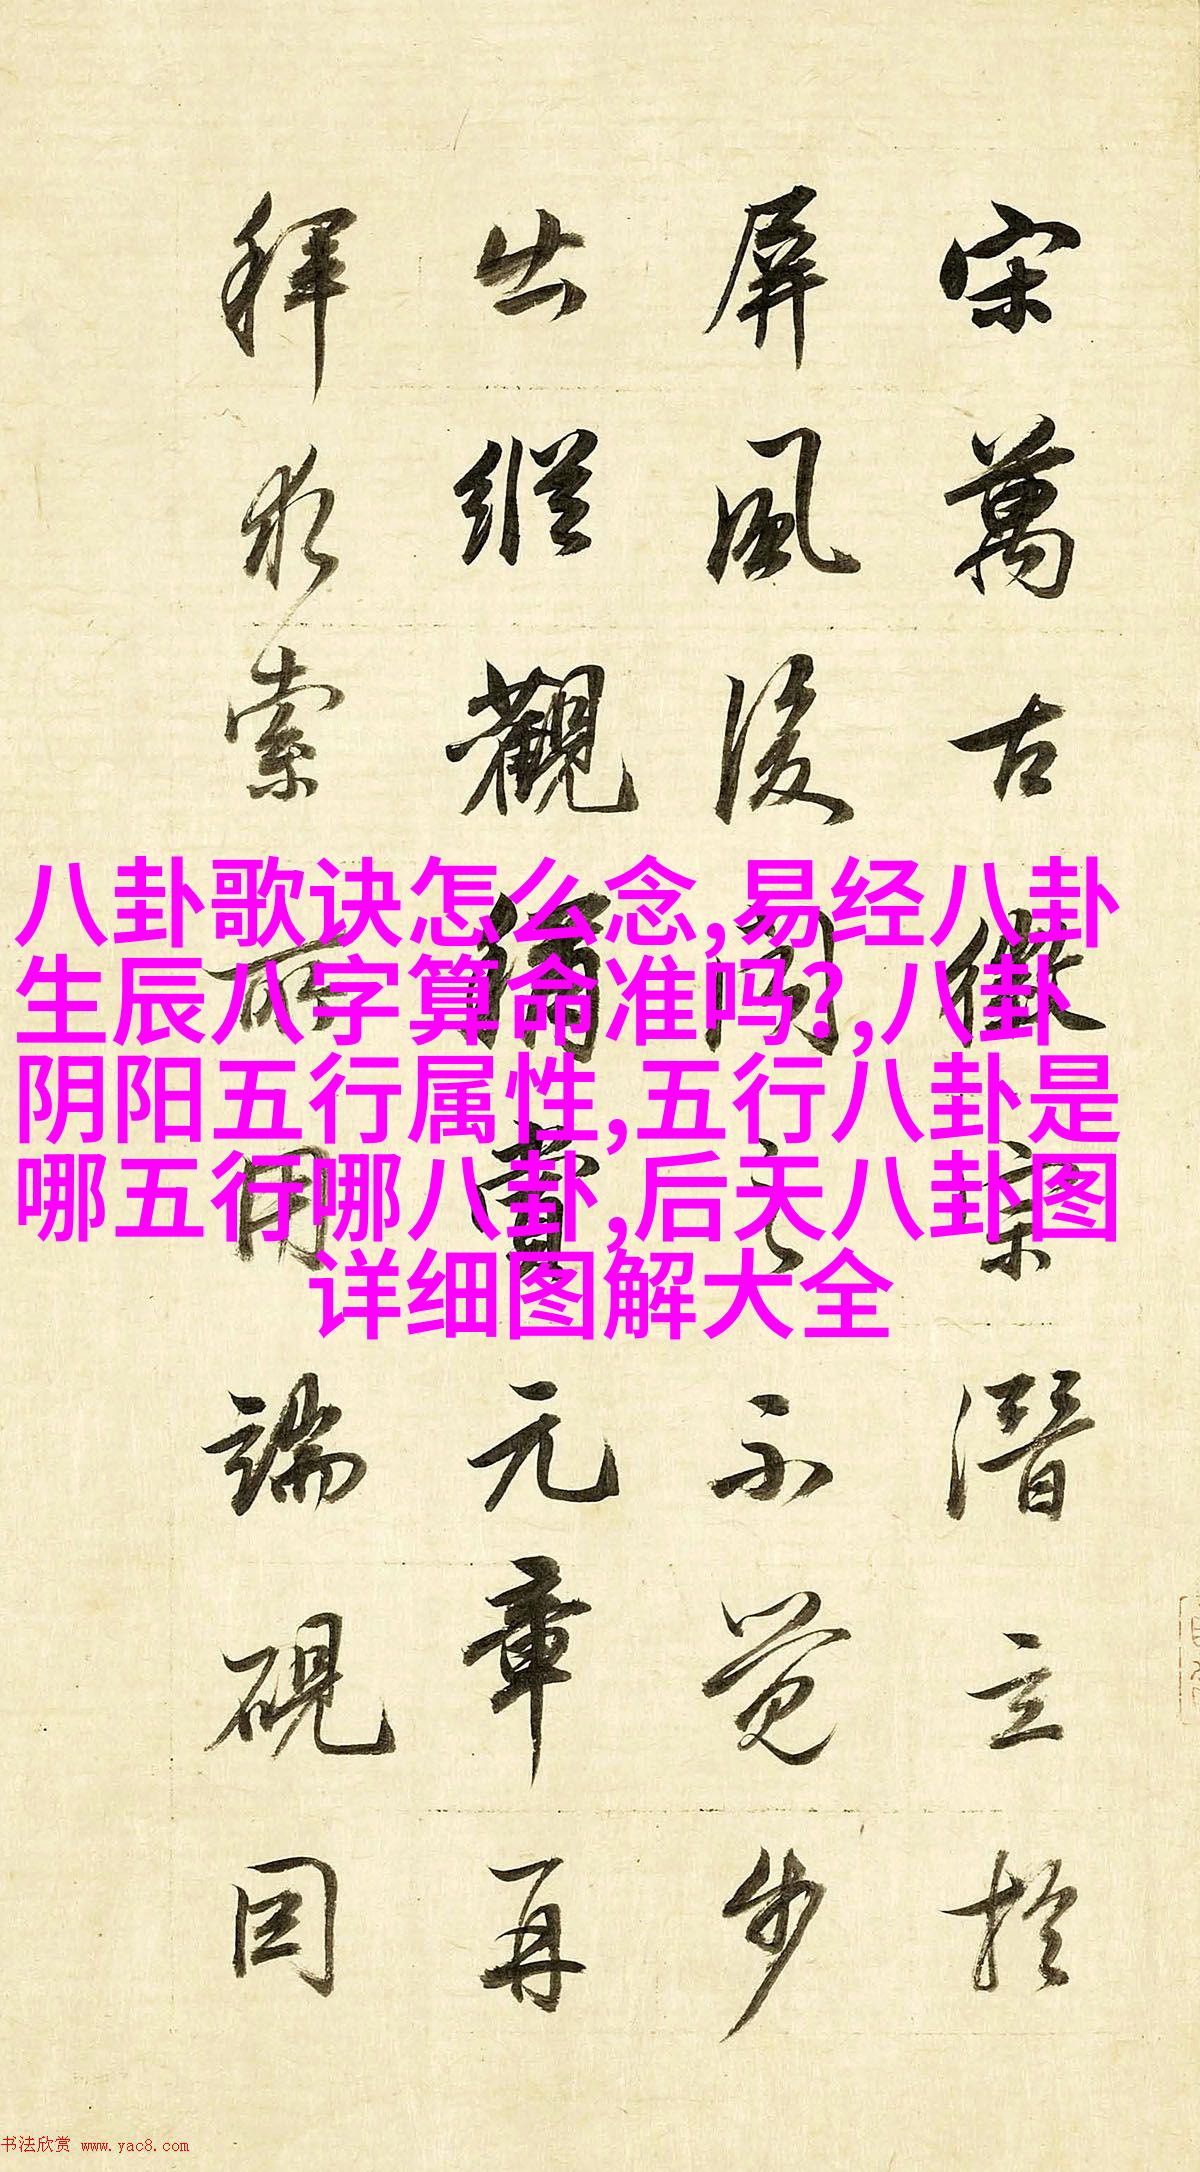 宋萬古徽宗潛立於
屏風後聞之不覺步
出縱觀稱賞元章再
拜求索所用端硯因
八卦歌诀怎么念,易经八卦
生辰八字算命准吗?,八卦
阴阳五行属性,五行八卦是
哪五行哪八卦,后天八卦图
详细图解大全
书法欣赏 www.yac8.com